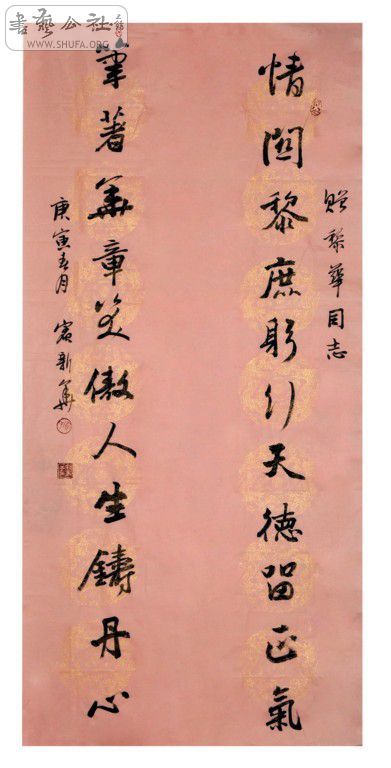 書藝公社
WWW.SHUFA.ORG
贈黎華同志
情關黎庶躬行天德留正氣
筆著華章笑傲人生鑄丹心
庚寅春月 新華